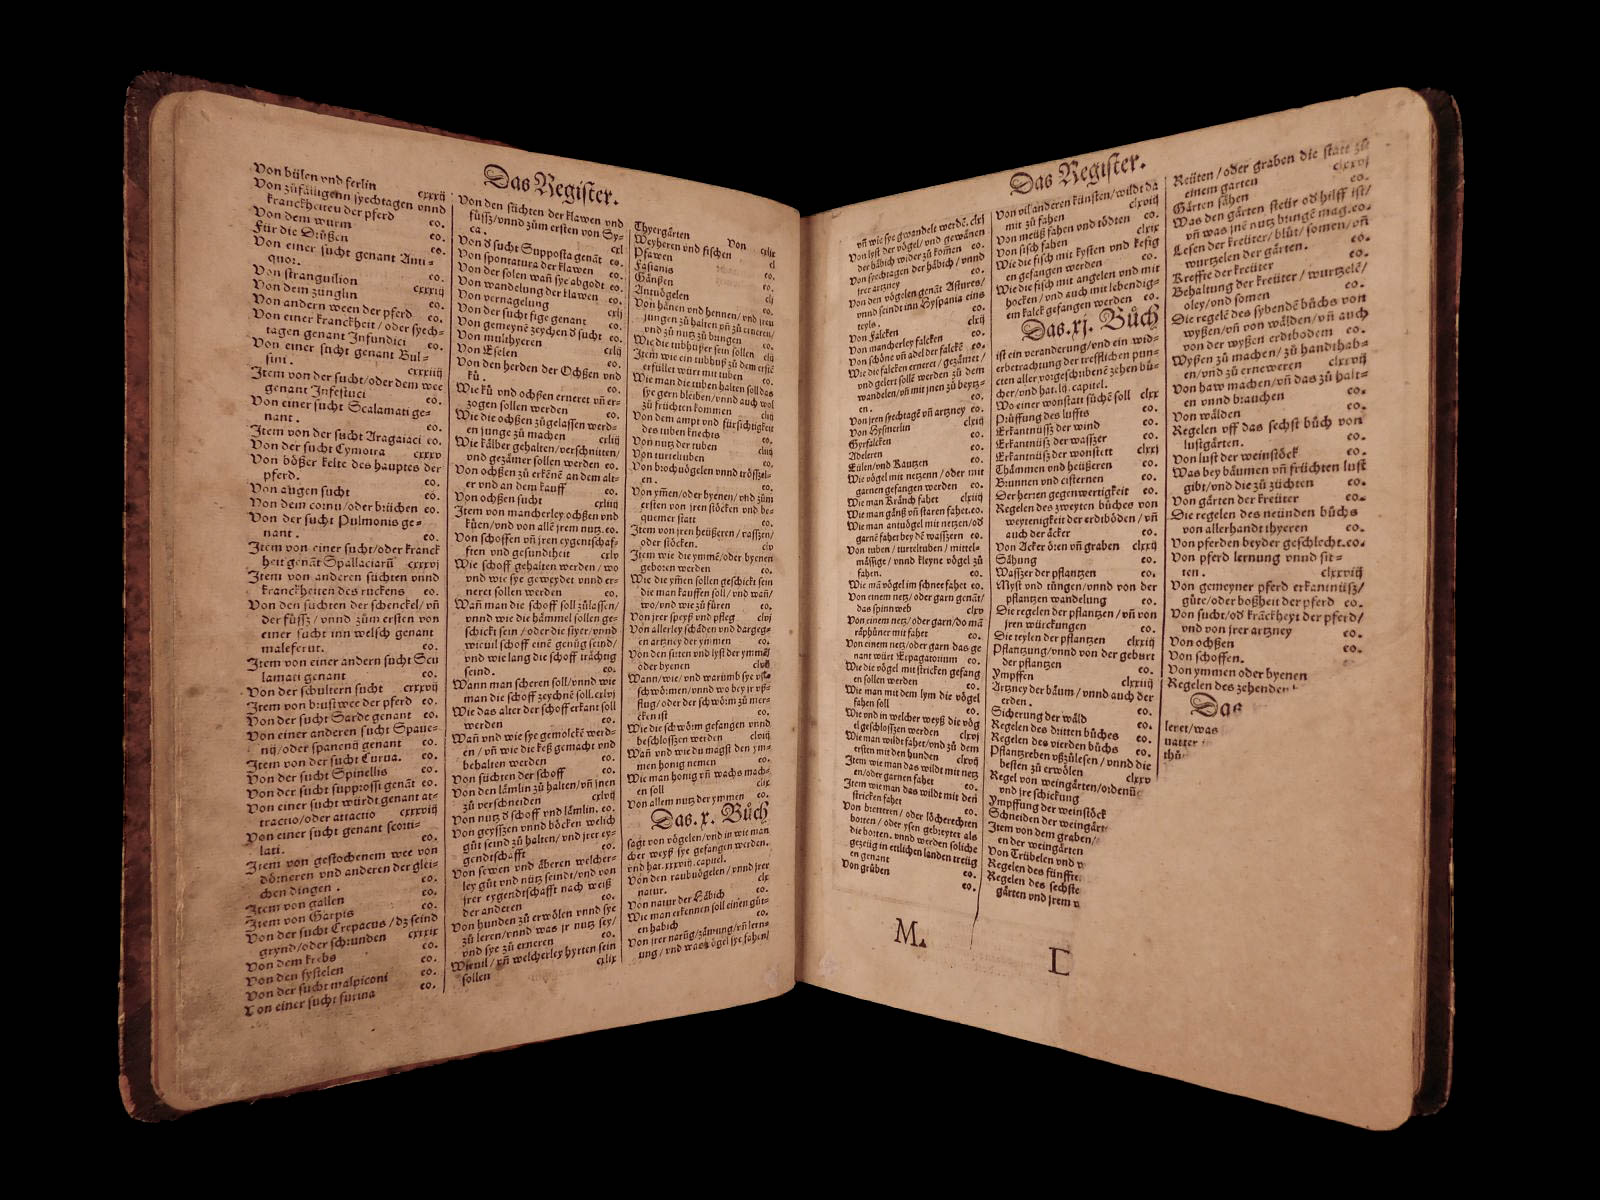 Das Register.
Von bülen vnd ferlin cxxxij
Von zůfälligenn syechtagen vnnd
kranckheiten der pferd eo.
Von dem wurm eo.
Für die Drüßen eo.
Von einer sucht genant Anti-
quor. eo.
Von stranguilion eo.
Von dem zünglin cxxxiij
Von andern ween der pferd eo.
Von einer kranckheit / oder syech-
tagen genant Infundici eo.
Von einer sucht genant Bul-
sini. cxxxiiij
Item von der sucht/oder dem wee
genant Infestuci eo.
Von einer sucht Scalamati ge-
nant. eo.
Item von der sucht Aragaiaci eo.
Von der sucht Cymoira cxxxv
Von bößer kelte des hauptes der
pferd. eo.
Von augen sucht eo.
Von dem cornu/oder brüchen eo.
Von der sucht Pulmonis ge-
nant. eo.
Item von einer sucht/oder kranck
heit genāt Spallaciarū cxxxvj
Item von anderen süchten vnnd
kranckheiten des ruckens eo.
Von den suchten der schenckel/vn̄
der füssz/vnnd zům ersten von
einer sucht inn welsch genant
maleferut. eo.
Item von einer andern sucht Scu
lamati genant eo.
Von der schultern sucht cxxxvij
Item von brustwee der pferd eo.
Von der sucht Garde genant eo.
Von einer anderen sucht Spaue-
nij/oder spanenij genant eo.
Item von der sucht Curua. eo.
Von der sucht Spinellis eo.
Von der sucht supprossi genāt eo.
Von einer sucht würdt genant at-
tractio/oder attactio cxxxviij
Von einer sucht genant scorti-
lati. eo.
Item von gestochenem wee von
dörneren vnd anderen der glei-
chen dingen. eo.
Item von gallen eo.
Item von Garpis eo.
Von der sucht Crepacus/dz seind
grynd/oder schrunden cxxxix
Von dem krebs eo.
Von den fystelen eo.
Von der sucht malpiconi eo.
Von einer sucht furma eo.
Von den süchten der klawen vnd
füssz/vnnd zům ersten von Sy-
ca. cxl
Von d sucht Supposta genāt eo.
Von spontatura der klawen eo.
Von der solen wañ sye abgodt eo.
Von wandelung der klawen eo.
Von vernagelung cxlj
Von der sucht fige genant eo.
Von gemeynē zeychen d sucht eo.
Von multhyeren cxlij
Von Eselen eo.
Von den herden der Ochßen vnd
kü. eo.
Wie kü vnd ochßen erneret vn̄ er-
zogen sollen werden eo.
Wie die ochßen zůgelassen werd-
en junge zů machen cxliij
Wie kälber gehalten/verschnitten/
vnd gezämer sollen werden eo.
Von ochßen zů erkēnē an dem alt-
er vnd an dem kauff eo.
Von ochßen sucht cxliiij
Item von mancherley ochßen vnd
küen/vnd von allē jren nutz. eo.
Von schoffen vn̄ jren eygentschaf-
ften vnd gesundtheit cxlv
Wie schoff gehalten werden/wo
vnd wie sye geweydet vnnd er-
neret sollen werden eo.
Wañ man die schoff soll zůlassen/
vnnd wie die hämmel sollen ge-
schickt sein/oder die styer/vnnd
wieuil schoff einē genůg seind/
vnd wie lang die schoff trächtig
seind. eo.
Wann man scheren soll/vnnd wie
man die schoff zeychnē soll. cxlvj
Wie das alter der schoff erkant soll
werden eo.
Wañ vnd wie sye gemolckē werd-
en/vn̄ wie die keß gemacht vnd
behalten werden eo.
Von süchten der schoff eo.
Von den lämlin zů halten/vn̄ jnen
zů verschneiden cxlvij
Von nutz d schoff vnd lämlin. eo.
Von geyßzen vnnd böcken welch
gůt seind zů halten/vnd jrer ey-
gendtschafft eo.
Von sewen vnd äberen welcher-
ley gůt vnd nütz seindt/vnd von
jrer eygendtschafft nach weiß
der anderen eo.
Von hunden zů erwölen vnnd sye
zů leren/vnnd was jr nutz sey/
vnd sye zů erneren eo.
Wieuil/vn̄ welcherley hyrten sein
sollen cxlix
Thyergärten Von cxlix
Weyheren vnd fischen cl
Pfawen eo.
Fasianis eo.
Gänßen eo.
Antuögelen clj
Von hānen vnd hennen/vnd jren
jungen zů halten vn̄ zů erneren/
vnd zů nutz zů bungen eo.
Wie die tubhüßer sein sollen clij
Item wie ein tubhuß zů dem ersten
erfüllet würt mit tuben eo.
Wie man die tuben halten soll das
sye gern bleiben/vnnd auch wol
zů früchten kommen cliij
Von dem ampt vnd fürsichtigkeit
des tuben knechts eo.
Von nutz der tuben cliiij
Von turteltuben eo.
Von brochuögelen vnnd trösszel-
en. eo.
Von ymen/oder byenen/vnd zům
ersten von jren stöcken vnd be-
quemer statt eo.
Item von jren heüßeren/vasszen/
oder stöcken. clv
Item wie die ymmē/oder byenen
geboren werden eo.
Wie die ymen sollen geschickt sein
die man kauffen soll/vnd wañ/
wo/vnd wie zů füren eo.
Von jrer speyß vnd pfleg clvj
Von allerley schäden vnd dargeg-
en artzney der ymmen eo.
Von den sitten vnd lyst der ymmē
oder byenen clvij
Wann/wie/vnd warumb sye vß-
schwörmen/vnnd wo bey jr vß-
flug/oder der schwörm zů mer-
cken ist eo.
Wie die schwörm gefangen vnnd
beschlossen werden clviij
Wañ vnd wie du magst den ym-
men honig nemen eo.
Wie man honig vn̄ wachs mach-
en soll clix
Von allem nutz der ymmen eo.
Das. x. Bůch
sagt von vögelen/vnd in wie man
cher weyß sye gefangen werden.
vnd hat. xxxviij. capitel.
Von den raubuögelen/vnnd jrer
natur. clx
Von natur der Häbich eo.
Wie man erkennen soll einen gůt-
en habich eo.
Von jrer narūg/zämung/vn̄ lern-
ung/vnd was vögel sye fahen/
Das Register.
vn̄ wie sye gwandelt werdē. clxj
Von lyst der vögel/vnd gewänen
der häbich wider zů komē eo.
Von syechtagen der häbich/vnnd
jrer artzney eo.
Von den vögelen genāt Astures/
vnnd seindt inn Hyspania eins
teyls. eo.
Von Falcken clxij
Von mancherley falcken eo.
Von schöne vn̄ adel der falckē eo.
Wie die falcken erneret/gezämet/
vnd gelert sollē werden zů dem
wandelen/vn̄ mit jnen zů beytz-
en. eo.
Von jren syechtagē vn̄ artzney eo.
Von Hysmerlin clxiij
Gyrfalcken eo.
Adeleren eo.
Eülen/vnd Kautzen eo.
Wie vögel mit netzenn/oder mit
garnen gefangen werden eo.
Wie man Kränch fahet clxiiij
Wie man gänß vn̄ staren fahet. eo.
Wie man antuögel mit netzen/od
garnē fahet bey dē wasszern eo.
Von tuben/turteltuben/mittel-
mässigt/vnnd kleyne vögel zů
fahen. eo.
Wie mā vögel im schnee fahet eo.
Von einem netz/oder garn genāt/
das spinnweb clxv
Von einem netz/oder garn/do mā
räphüner mit fahet eo.
Von einem netz/oder garn das ge
nant würt Expagatorium eo.
Wie die vögel mit stricken gefang
en sollen werden eo.
Wie man mit dem lym die vögel
fahen soll eo.
Wie vnd in welcher weyß die vög
el geschlossen werden clxvj
Wie man wildt fahet/vnd zů dem
ersten mit den hunden clxvij
Item wie man das wildt mit netz
en/oder garnen fahet eo.
Item wie man das wildt mit den
stricken fahet eo.
Von bretteren/oder löcherechten
borten/oder ysen gebreyter als
die borten. vnnd werden soliche
gezeüg in ettlichen landen treüg
en genant eo.
Von grůben eo.
Von vil anderen künsten/wildt da
mit zů fahen clxviij
Von meüß fahen vnd tödten eo.
Von fisch fahen clxix
Wie die fisch mit kysten vnd kefig
en gefangen werden eo.
Wie die fisch mit angelen vnd mit
hocken/vnd auch mit lebendig-
em kalck gefangen werden eo.
Das. xj. Bůch
ist ein veranderung/vnd ein wid-
erbetrachtung der trefflichen pun-
cten aller vorgeschribenē zehen bü-
cher/vnd hat. lij. capitel.
Wo einer wonstatt sůchē soll clxx
Prüffung des luffts eo.
Erkantnüssz der wind eo.
Erkantnüssz der wasszer eo.
Erkantnüssz der wonstett clxxj
Thämmen vnd heüßeren eo.
Brunnen vnd cisternen eo.
Der herren gegenwertigkeit eo.
Regelen des zweyten bůches von
weyrenigkeit der erdtböden/vn̄
auch der äcker eo.
Von Acker ören vn̄ graben clxxij
Sähung eo.
Wasszer der pflantzen eo.
Myst vnd tüngen/vnnd von der
pflantzen wandelung eo.
Die regelen der pflantzen/vn̄ von
jren würckungen eo.
Die teylen der pflantzen clxxiij
Pflantzung/vnnd von der geburt
der pflantzen eo.
Ympffen clxxiiij
Artzney der bäum/vnnd auch der
erden. eo.
Sicherung der wäld eo.
Regelen des dritten bůches eo.
Regelen des vierden bůchs eo.
Pflantzreben vßzůlesen/vnnd die
besten zů erwölen clxxv
Regel von weingärten/ordenūg
vnd jre schickung
Ympffung der weinstöck
Schneiden der weingärt
Item von dem graben/
en der weingärten
Von Trübelen vnd v
Regelen des fünffte
Regelen des sechste
gärten vnd jrem n
Reüten/oder graben die statt zů
einem garten clxxvj
Gärten sähen eo.
Was den gärten steür od hilff ist/
vn̄ was jnē nutz bungē mag. eo.
Lesen der kreüter/blůt/somen/vn̄
wurtzelen der gärten. eo.
Kreffte der kreüter eo.
Behaltung der kreüter/wurtzelē/
oley/vnd somen eo.
Die regelē des sybendē bůchs von
wyßen/vn̄ von wälden/vn̄ auch
von der wyßen erdtbodem eo.
Wyßen zů machen/zů handthab-
en/vnd zů erneweren clxxvij
Von haw machen/vn̄ das zů halt-
en vnnd brauchen eo.
Von wälden eo.
Regelen vff das sechst bůch von
lustgärten. eo.
Von lust der weinstöck eo.
Was bey bäumen vn̄ früchten lust
gibt/vnd die zů züchten eo.
Von gärten der kreüter eo.
Die regelen des neünden bůchs
von allerhandt thyeren eo.
Von pferden beyder geschlecht. eo.
Von pferd lernung vnnd sit-
ten. clxxviij
Von gemeyner pferd erkantnüssz/
güte/oder boßheit der pferd eo.
Von sucht/od krāckheyt der pferd/
vnd von jrer artzney eo.
Von ochßen eo.
Von schoffen.
Von ymmen oder byenen
Regelen des zehenden
Das
leret/was
natter
thů
M.